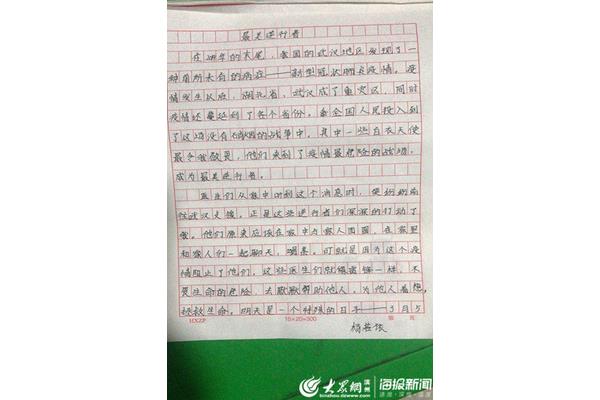 最美逆行者
在19年的末尾，我国的武汉地区发现了一
种前所未有的病症——新型冠状肺炎疫情。疫
情发生以后，湖北省、武汉成了重灾区，同时
疫情还蔓延到了各个省份。全国人民投入到
了这场没有硝烟的战争中。其中一些白衣天使
最令我敬灵，他们来到了疫情最危险的战场，
成为最美逆行者。
医生们从家中听到这个消息时，便纷纷前
往武汉支援。正是这些逆行者们深深的打动了
我。他们原来应该在家中与家人团圆，在家里
和家人们一起聊天，喝茶。可就是因为这个疫
情阻止了他们。这些医生们就像雷锋一样，不
畏生命的危险，去默默帮助他人，为他人着想，
拯救生命。明天是一个特殊的日子——3月5
1XXZP
15×20=300
第 页
杨
大众网
滨州
binzhou.dzwww.com
海报新闻